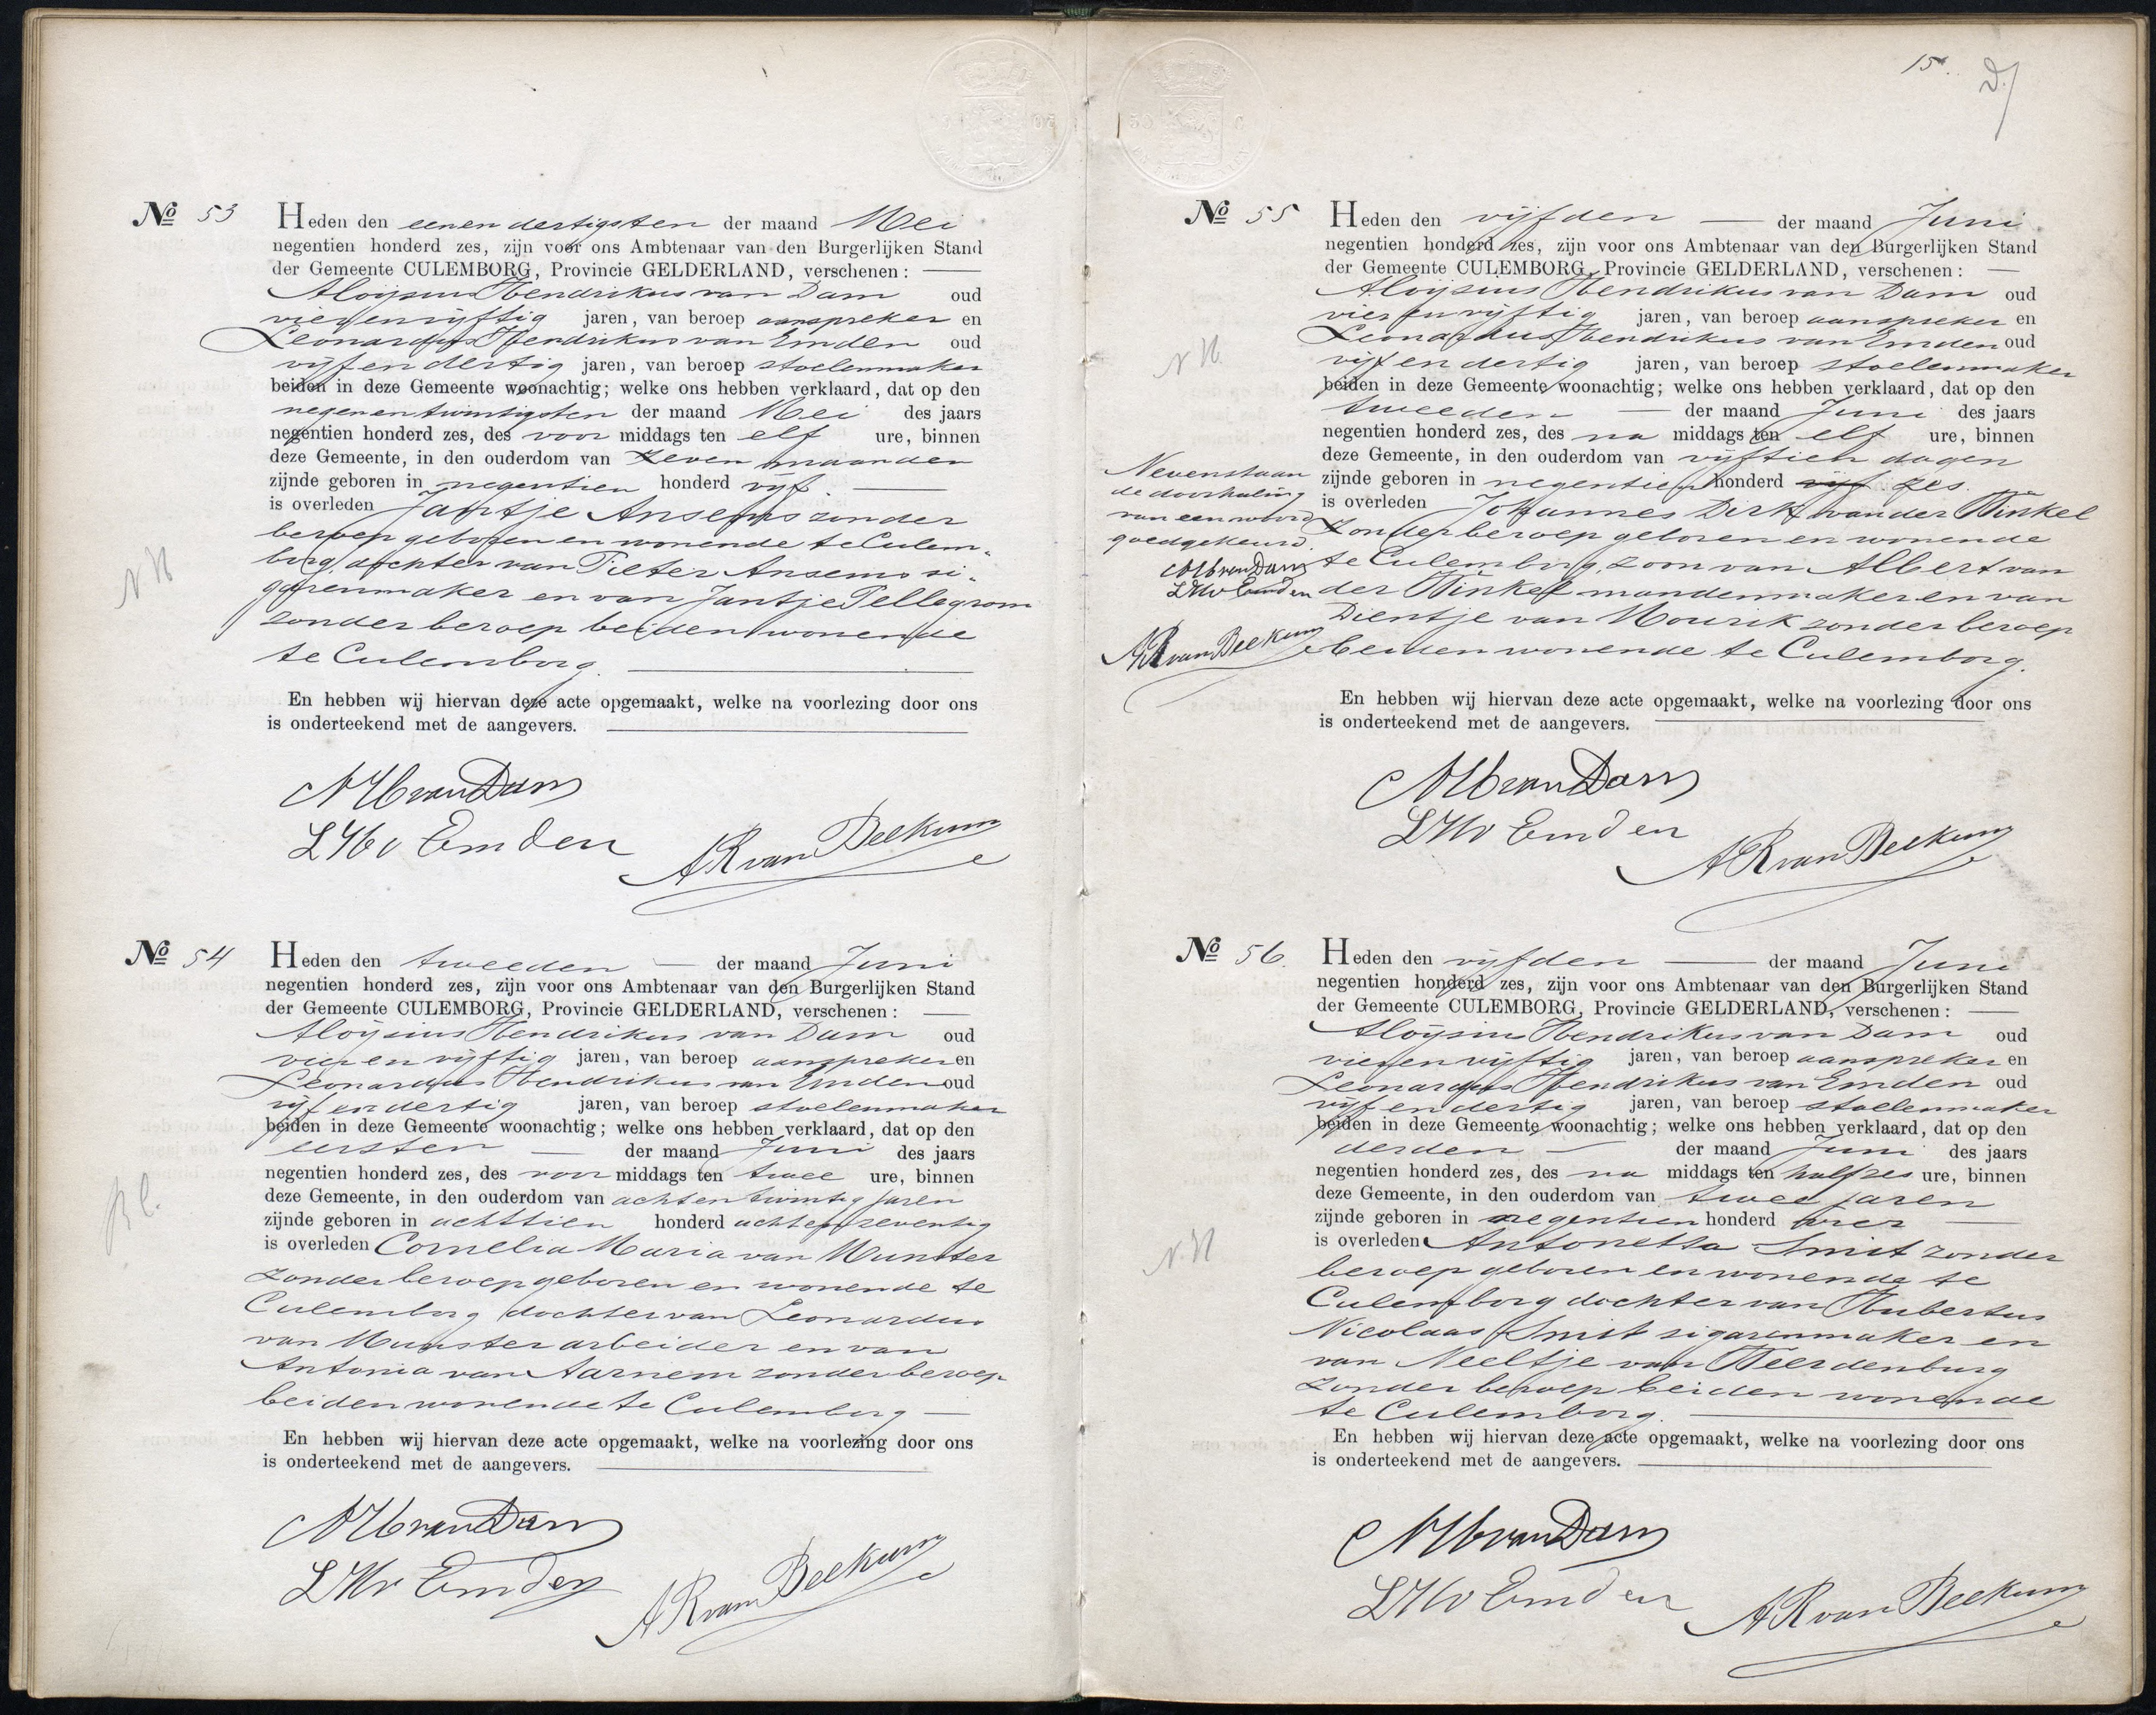 15
D/
No 53
Heden den eenendertigsten der maand Mei
negentien honderd zes, zijn voor ons Ambtenaar van den Burgerlijken Stand
der Gemeente CULEMBORG, Provincie GELDERLAND, verschenen:
Aloijsius Hendrikus van Dam oud
vierenvijftig jaren, van beroep aanspreker en
Leonardus Hendrikus van Emden oud
vijfendertig jaren, van beroep stoelenmaker
beiden in deze Gemeente woonachtig; welke ons hebben verklaard, dat op den
negenentwintigsten der maand Mei des jaars
negentien honderd zes, des voor middags ten elf ure, binnen
deze Gemeente, in den ouderdom van zeven maanden
zijnde geboren in negentien honderd vijf.
is overleden Jantje Ansems zonder
beroep geboren en wonende te Culem-
borg, dochter van Pieter Ansems si-
garenmaker en van Jantje Pellegrom
zonder beroep beiden wonende
te Culemborg
N H
En hebben wij hiervan deze acte opgemaakt, welke na voorlezing door ons
is onderteekend met de aangevers.
AHvanDam
LHv Emden
AR van Beekum
No 54
Heden den tweeden der maand Juni
negentien honderd zes, zijn voor ons Ambtenaar van den Burgerlijken Stand
der Gemeente CULEMBORG, Provincie GELDERLAND, verschenen:
Aloijsius Hendrikus van Dam oud
vierenvijftig jaren, van beroep aanspreker en
Leonardus Hendrikus van Emden oud
vijfendertig jaren, van beroep stoelenmaker
beiden in deze Gemeente woonachtig; welke ons hebben verklaard, dat op den
eersten der maand Juni des jaars
negentien honderd zes, des voor middags ten twee ure, binnen
deze Gemeente, in den ouderdom van achtentwintig jaren
zijnde geboren in achttien honderd achtenzeventig
is overleden Cornelia Maria van Munster
zonder beroep geboren en wonende te
Culemborg dochter van Leonardus
van Munster arbeider en van
Antonia van Aarnem zonder beroep
beiden wonende te Culemborg
En hebben wij hiervan deze acte opgemaakt, welke na voorlezing door ons
is onderteekend met de aangevers.
AHvanDam
LHv Emden
AR van Beekum
No 55
Heden den vijfden der maand Juni
negentien honderd zes, zijn voor ons Ambtenaar van den Burgerlijken Stand
der Gemeente CULEMBORG, Provincie GELDERLAND, verschenen:
Aloijsius Hendrikus van Dam oud
vierenvijftig jaren, van beroep aanspreker en
Leonardus Hendrikus van Emden oud
vijfendertig jaren, van beroep stoelenmaker
beiden in deze Gemeente woonachtig; welke ons hebben verklaard, dat op den
tweeden der maand Juni des jaars
negentien honderd zes, des na middags ten elf ure, binnen
deze Gemeente, in den ouderdom van vijftien dagen
zijnde geboren in negentien honderd vijf zes.
is overleden Johannes Dirk van der Winkel
zonder beroep geboren en wonende
te Culemborg, zoon van Albert van
der Winkel mandenmaker en van
Dientje van Mourik zonder beroep
beiden wonende te Culemborg.
N H.
Nevenstaan
de doorhaling
van een woord
goedgekeurd.
AHvanDam
LHv Emden
AR van Beekum
En hebben wij hiervan deze acte opgemaakt, welke na voorlezing door ons
is onderteekend met de aangevers.
AHvanDam
LHv Emden
AR van Beekum
No 56.
Heden den vijfden der maand Juni
negentien honderd zes, zijn voor ons Ambtenaar van den Burgerlijken Stand
der Gemeente CULEMBORG, Provincie GELDERLAND, verschenen:
Aloijsius Hendrikus van Dam oud
vierenvijftig jaren, van beroep aanspreker en
Leonardus Hendrikus van Emden oud
vijfendertig jaren, van beroep stoelenmaker
beiden in deze Gemeente woonachtig; welke ons hebben verklaard, dat op den
derden der maand Juni des jaars
negentien honderd zes, des na middags ten halfzes ure, binnen
deze Gemeente, in den ouderdom van twee jaren
zijnde geboren in negentien honderd vier
is overleden Antonetta Smit zonder
beroep geboren en wonende te
Culemborg dochter van Hubertus
Nicolaas Smit sigarenmaker en
van Neeltje van Weerdenburg
zonder beroep beiden wonende
te Culemborg.
N.H
En hebben wij hiervan deze acte opgemaakt, welke na voorlezing door ons
is onderteekend met de aangevers.
AHvanDam
LHv Emden
AR van Beekum